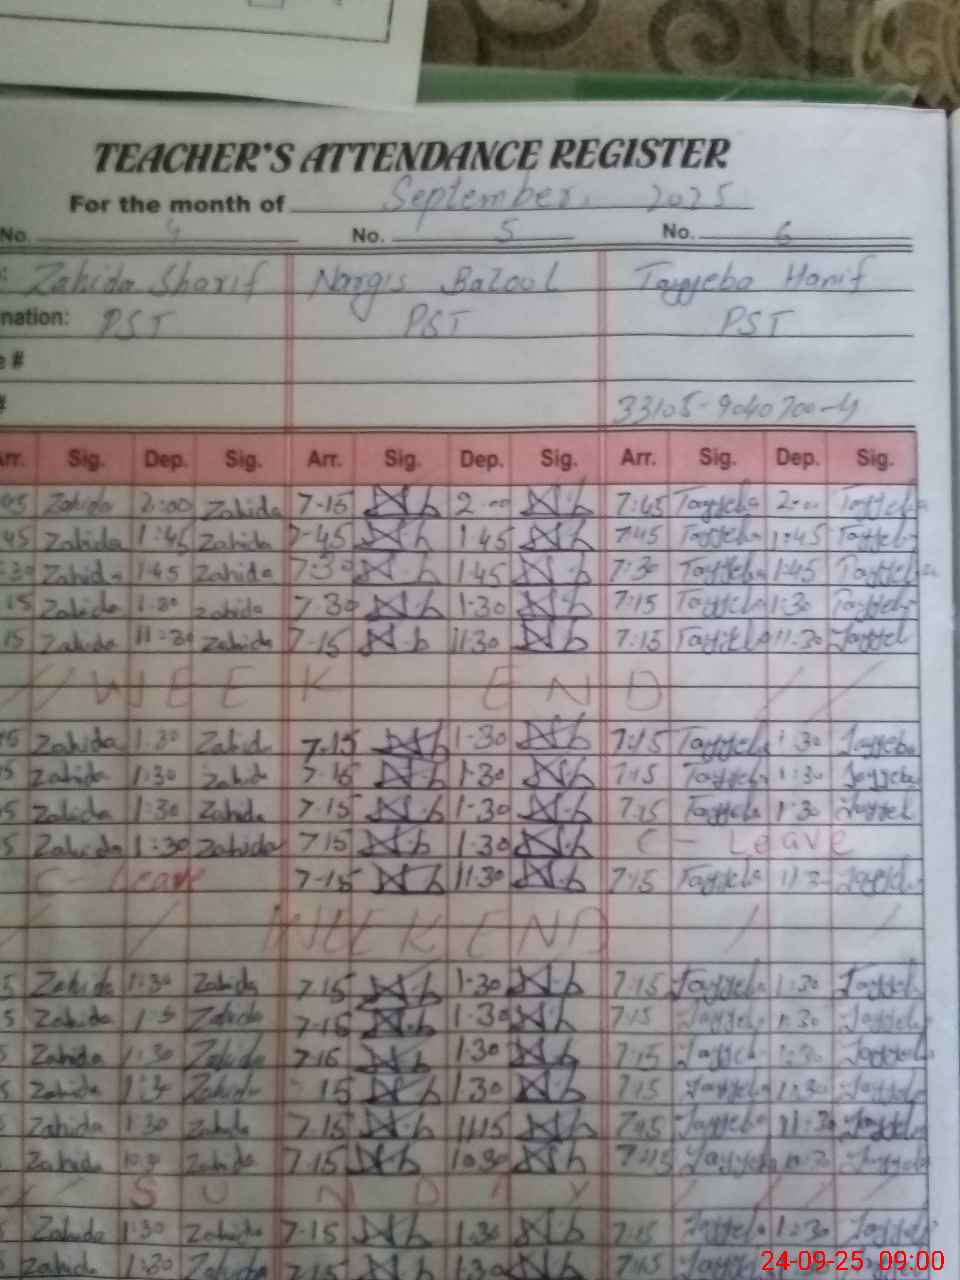 TEACHER'S ATTENDANCE REGISTER
For the month of September. 2025
No. 4 No. 5 No. 6
Zahida Sharif Nargis Batool Tayyeba Hanif
nation: PST PST PST
#
# 33105-9040700-4
Arr. Sig. Dep. Sig. Arr. Sig. Dep. Sig. Arr. Sig. Dep. Sig.
Zahida 2:00 Zahida 7-15 2-00 7:45 Tayyeba 2-00 Tayyeba
45 Zahida 1:45 Zahida 7-45 1.45 7:45 Tayyeba 1:45 Tayyeba
:30 Zahida 1:45 Zahida 7:30 1.45 7:30 Tayyeba 1:45 Tayyeba
15 Zahida 1:30 Zahida 7.30 1.30 7:15 Tayyeba 1:30 Tayyeba
15 Zahida 11:30 Zahida 7-15 11.30 7:15 Tayyeba 11:30 Tayyeb
/ / W E E K E N D / /
5 Zahida 1:30 Zahid 7.15 1-30 7:15 Tayyeba 1:30 Tayyeba
5 Zahida 1:30 Zahida 7-15 1-30 7:15 Tayyeba 1:30 Tayyeba
5 Zahida 1:30 Zahida 7.15 1-30 7:15 Tayyeba 1:30 Tayyeb
5 Zahida 1:30 Zahida 7 15 1.30 C - Leave
C - Leave 7-15 11.30 7:15 Tayyeba Tayyeba
/ / W E E K E N D / /
5 Zahida 1:30 Zahida 7.15 1-30 7:15 Tayyeba 1:30 Tayyeba
5 Zahida Zahida 7-15 1-30 7:15 Tayyeba 1:30 Tayyeba
5 Zahida 1:30 Zahida 7-15 1.30 7:15 Tayyeba 1:30 Tayyeba
5 Zahida Zahida 15 1.30 7:15 Tayyeba 1:30 Tayyeba
Zahida 1:30 Zahida 7-15 11.15 Tayyeba 11:30 Tayyeba
Zahida 10:30 Zahida 7-15 10.30 7:15 Tayyeba Tayyeba
/ / S U N D A Y / / /
Zahida 1:30 Zahida 7-15 1.30 7:15 Tayyeba 1:30 Tayyeba
Zahida 1:30 7-15 1-30 7:15 Tayyeba
24-09-25 09:00